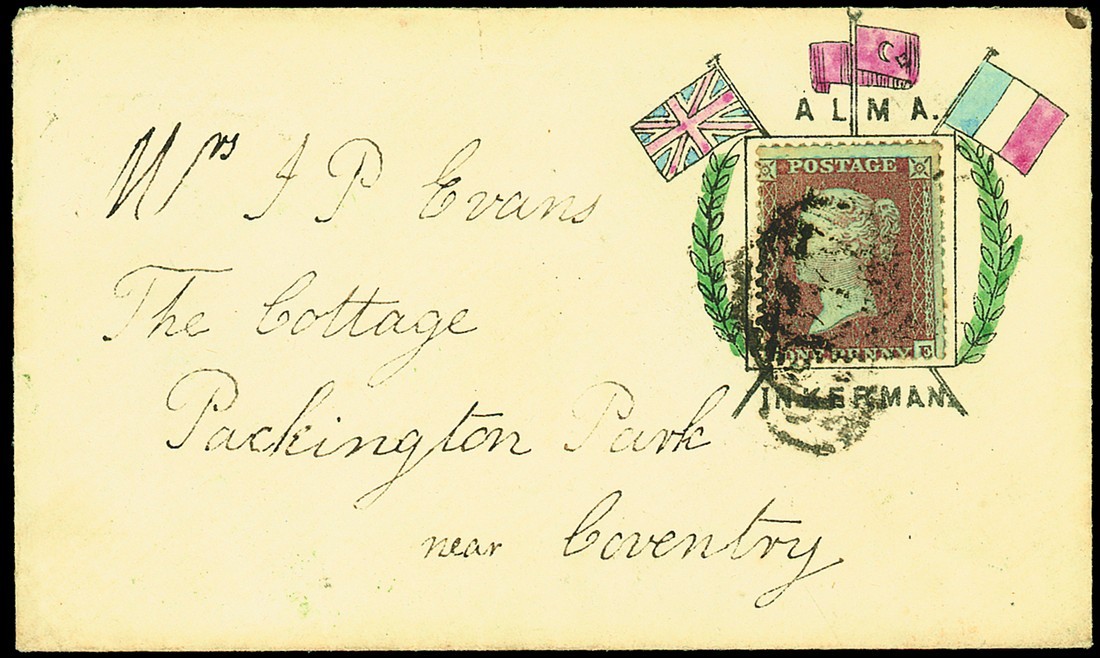 ALMA.
POSTAGE
ONE PENNY
E
INKERMAN.
Mrs J P Evans
The Cottage
Packington Park
near Coventry